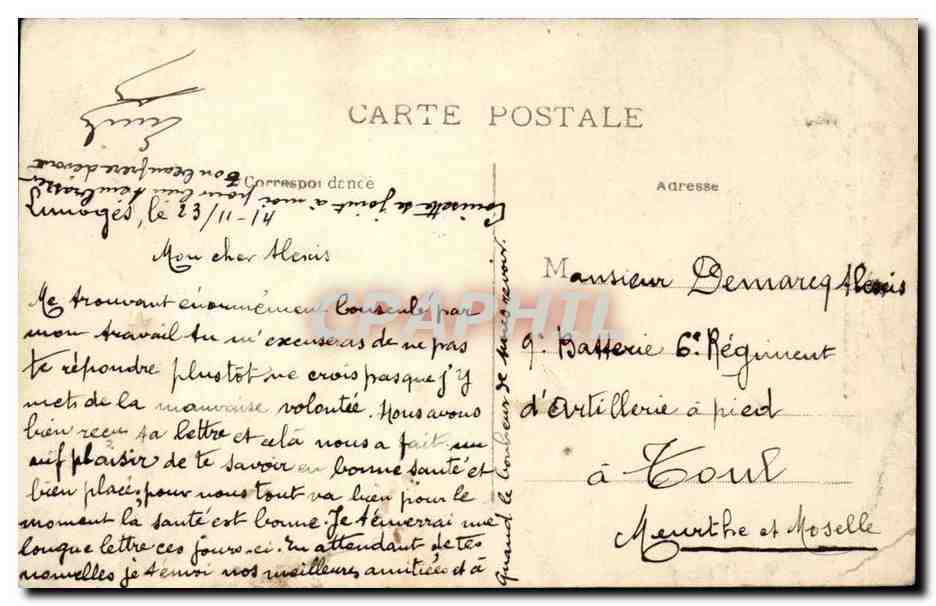 CARTE POSTALE
Correspondance
Adresse
Limoges, le 23/11-14
Mon cher Alexis
Me trouvant énormément bousculé par
mon travail tu m'excuseras de ne pas
te répondre plustot ne crois pas que j'y
mets de la mauvaise volontée. Nous avons
bien reçu ta lettre et celà nous a fait un
vif plaisir de te savoir en bonne santé et
bien placé, pour nous tout va bien pour le
moment la santé est bonne. Je t'enverrai une
longue lettre ces jours-ci. En attendant de tes
nouvelles je t'envoi nos meilleures amitiées et à
quand le bonheur de nous revoir.
Louisette se joint à moi pour bien t'embrasser
Ton beau frère dévoué
Emile
Monsieur Demarcq Alexis
9e Batterie 6e Régiment
d'Artillerie à pied
à Toul
Meurthe et Moselle
CPAPHIL